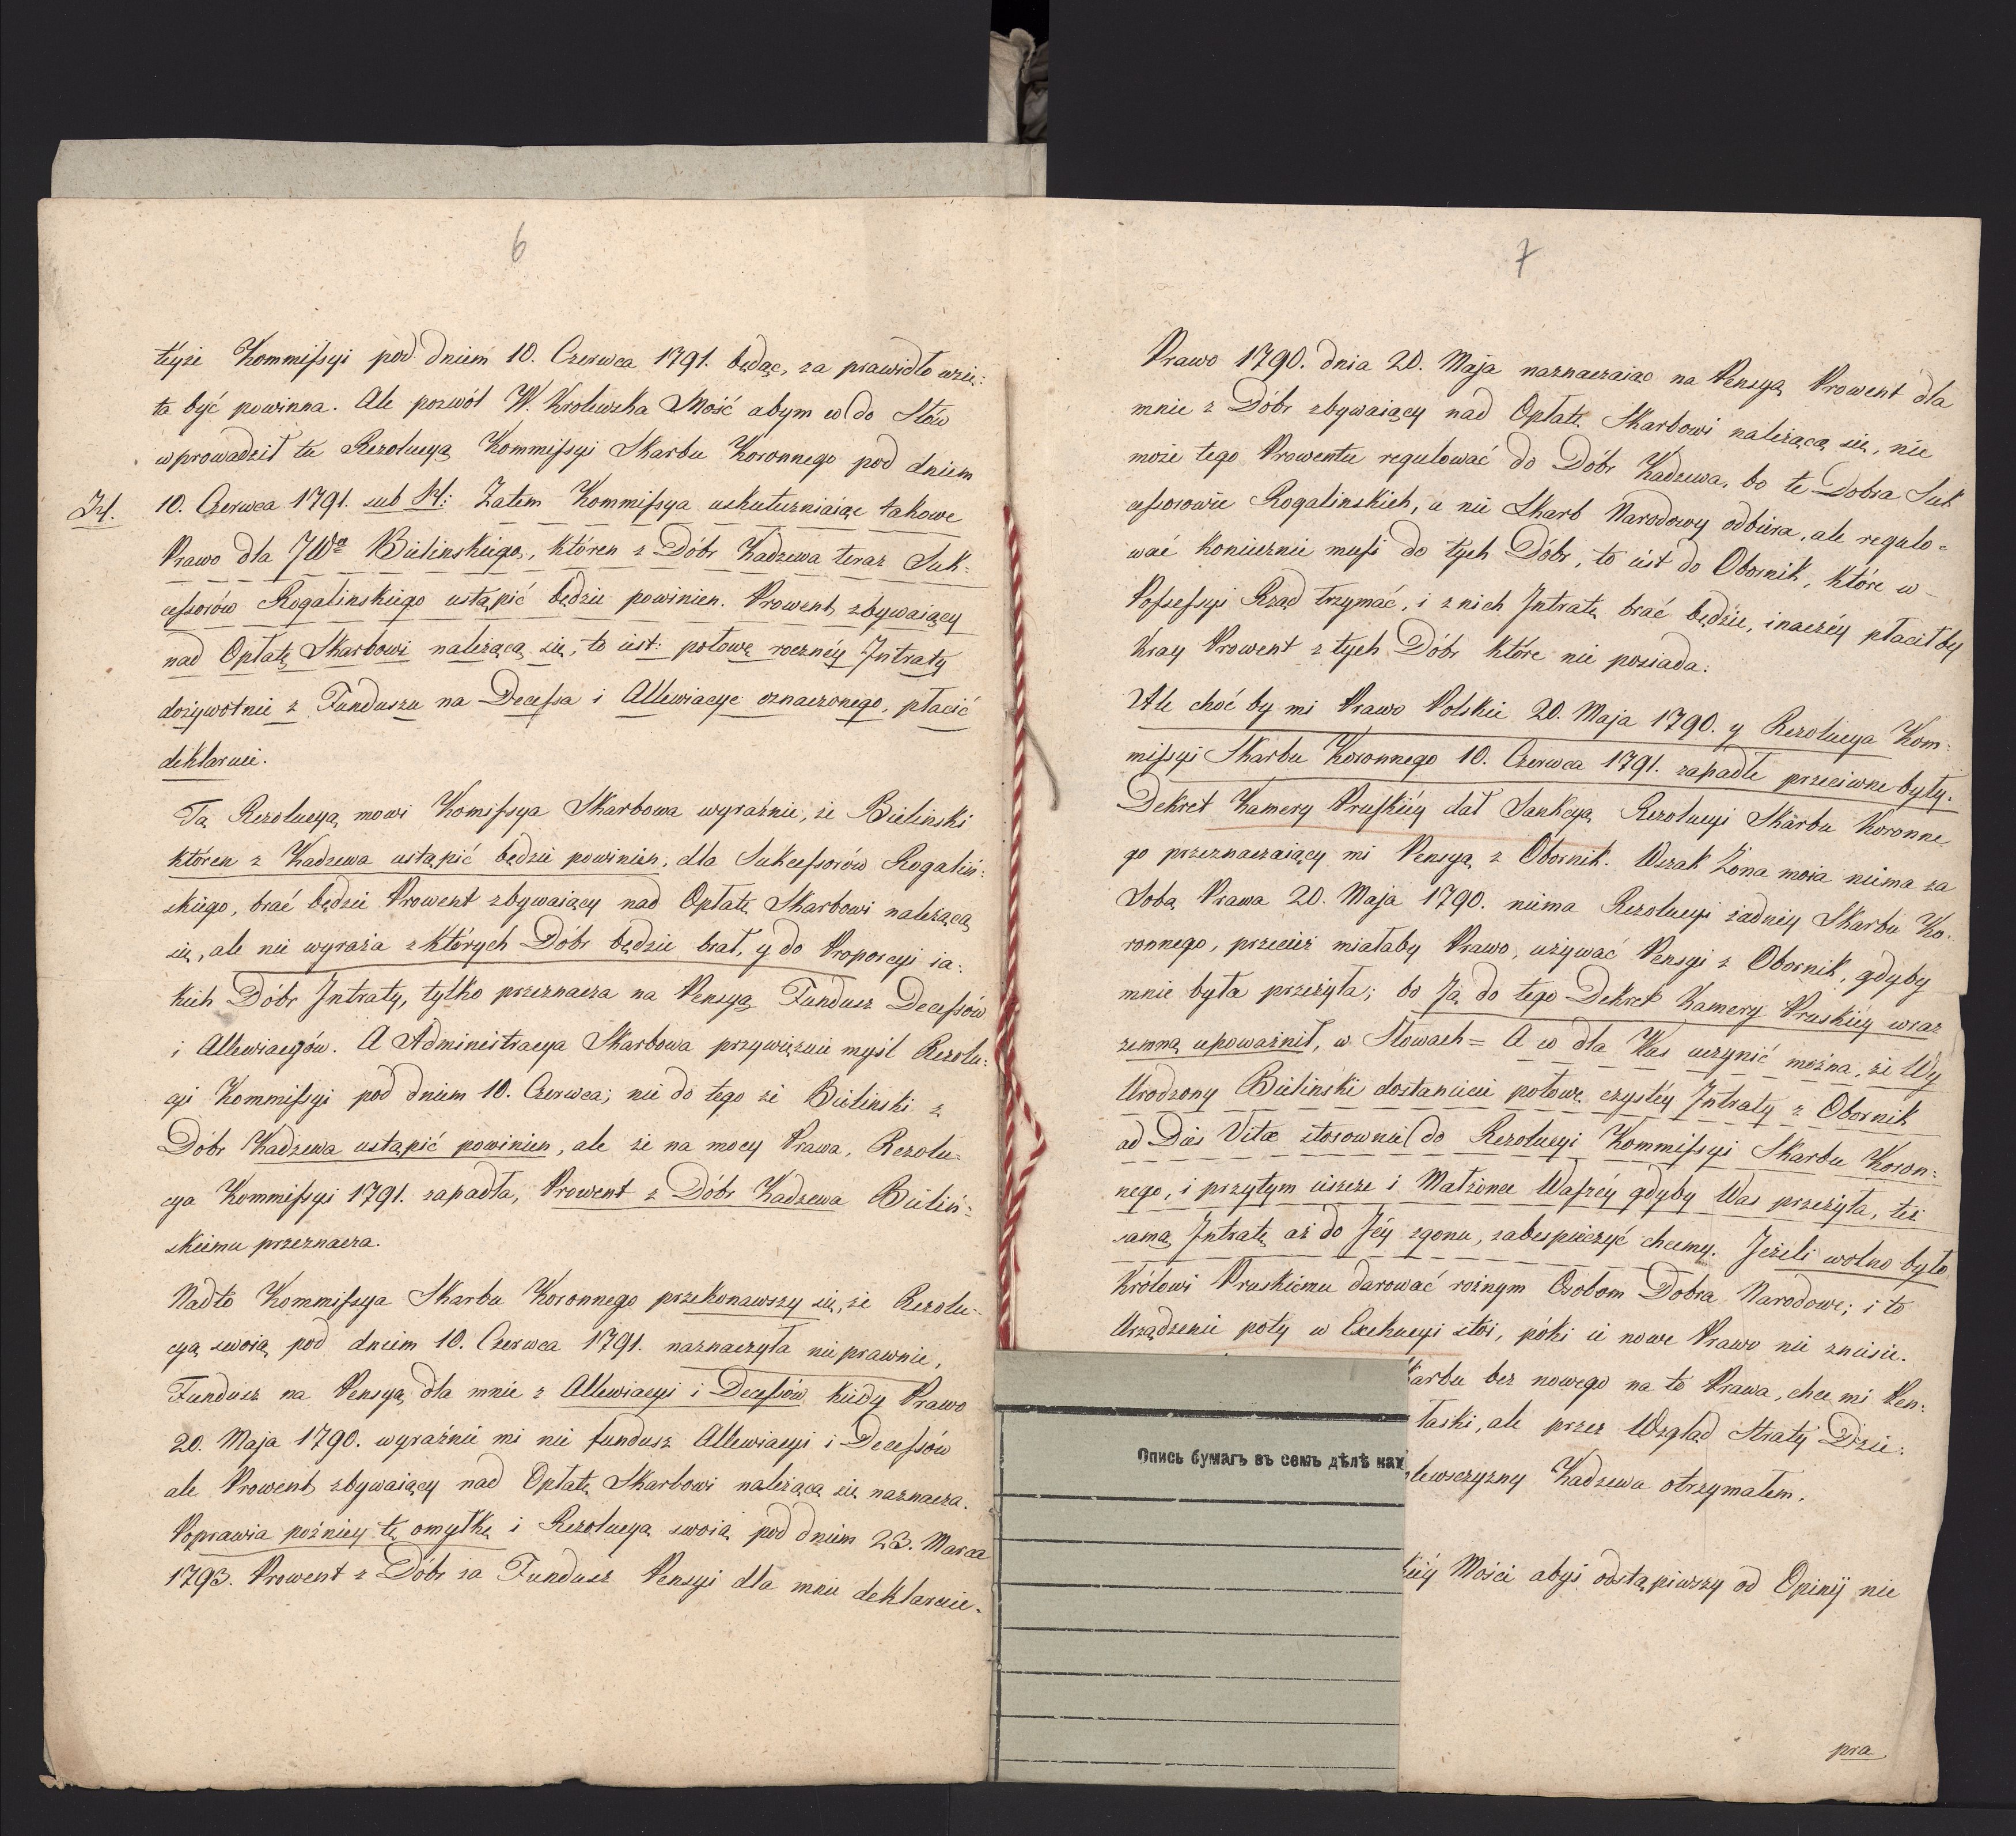 6
teyże Kommissyi pod dniem 10. Czerwca 1791. będąc, za prawidło wzię:
ta być powinna. Ale pozwól W. Krolewska Mość abym co do Słów
wprowadził tę Rezolucyą Kommissyi Skarbu Koronnego pod dniem
10. Czerwca 1791. sub Zatem Kommissya uskuteczniaiąc takowe
Prawo dla JWo Bielinskiego, któren z Dóbr Kadzewa teraz Suk:
cessorów Rogalinskiego ustąpić będzie powinien. Prowent zbywaiący
nad Opłatę Skarbowi należącą się, to iest: połowę roczney Intraty
dożywotnie z Funduszu na Decessa i Allewiacye oznaczonego, płacić
deklaruie.
Ta Rezolucyą mowi Komissya Skarbowa wyraźnie, że Bielinski
któren z Kadzewa ustąpić będzie powinien, dla Sukcessorów Rogaliń:
skiego, brać będzie Prowent zbywaiący nad Opłatę Skarbowi należącą
się, ale nie wyraża z których Dóbr będzie brał, y do Proporcyi ia:
kich Dóbr Intraty, tylko przeznacza na Pensyą Fundusz Decessów
i Allewiacyów. A Administracya Skarbowa przywiązuie myśl Rezolu:
cyi Kommissyi pod dniem 10. Czerwca; nie do tego że Bielinski z
Dóbr Kadzewa ustąpić powinien, ale że na mocy Prawa, Rezolu:
cya Kommissyi 1791. zapadła, Prowent z Dóbr Kadzewa Bieliń:
skiemu przeznacza.
Nadto Kommissya Skarbu Koronnego przekonawszy się, że Rezolu-
cyą swoią pod dniem 10. Czerwca 1791. naznaczyła nie prawnie,
Fundusz na Pensyą dla mnie z Allewiacyi i Decessów kiedy Prawo
20. Maja 1790. wyraźnie mi nie fundusz Allewiacyi i Decessów
ale Prowent zbywaiący nad Opłatę Skarbowi należącą się naznacza.
Poprawia poźniey tę omyłkę i Rezolucyą swoią pod dniem 23. Marca
1793. Prowent z Dóbr za Fundusz Pensyi dla mnie deklaruie.
7
Prawo 1790. dnia 20. Maja naznaczaiąc na Pensyą Prowent dla
mnie z Dóbr zbywaiący nad Opłatę Skarbowi należącą się, nie
może tego Prowentu regulować do Dóbr Kadzewa, bo te Dobra Suk
cessorowie Rogalinskich, a nie Skarb Narodowy odbiera, ale regulo-
wać koniecznie musi do tych Dóbr, to iest do Obornik, które w
Possessyi Rząd trzymać, i z nich Intratę brać będzie, inaczéy płaciłby
Kray Prowent z tych Dóbr które nie posiada.
Ale choć by mi Prawo Polskie 20. Maja 1790. y Rezolucya Kom:
missyi Skarbu Koronnego 10. Czerwca 1791. zapadłe przeciwne były.
Dekret Kamery Pruskiéy dał Sankcyą Rezolucyi Skarbu Koronne
go przeznaczaiący mi Pensyą z Obornik. Wszak Żona moia niema za
Sobą Prawa 20. Maja 1790. niema Rezolucyi żadniey Skarbu Ko.
ronnego, przecież miałaby Prawo, używać Pensyi z Obornik, gdyby
mnie była przeżyła; bo Ją do tego Dekret Kamery Pruskiey wraz
zemną upoważnił, w Słowach = A co dla Was uczynić można, że Wy
Urodzony Bielinski dostaniecie połowę czystéy Intraty z Obornik
ad Dies Vitæ stosownie do Rezolucyi Kommissyi Skarbu Koron:
nego, i przytym ieszcze i Małżonce Waszéy gdyby Was przeżyła, też
samą Intratę aż do Jéy zgonu, zabespieczyć chcemy. Jeżeli wolno było
Królowi Pruskiemu darować rożnym Osobom Dobra Narodowe; i to
Urządzenie poty w Exekucyi stoi, póki ie nowe Prawo nie zniesie.
karbu bez nowego na to Prawa, chce mi Pen:
łaski, ale przez Wzgląd Straty Dzie:
lewszczyzny Kadzewa otrzymałem.
kiéy Mości abyś odstąpiwszy od Opinij nie
pra
Опись бумагъ въ семъ дѣлѣ нах